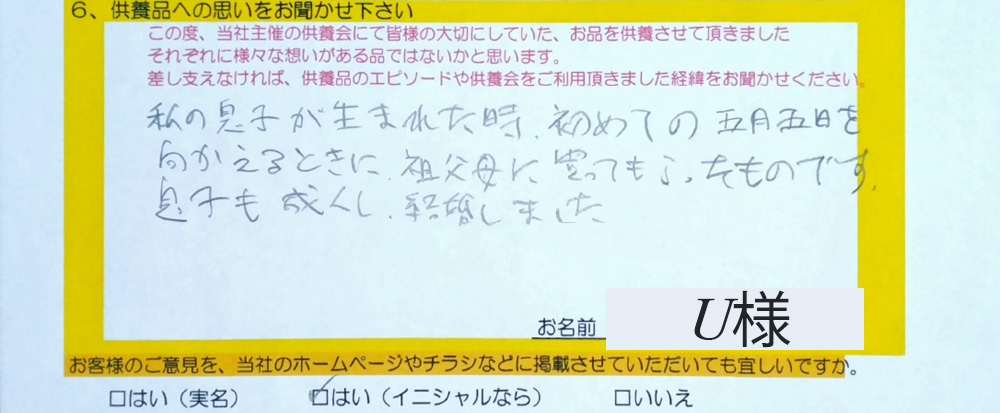 6、供養品への思いをお聞かせ下さい
この度、当社主催の供養会にて皆様の大切にしていた、お品を供養させて頂きました
それぞれに様々な想いがある品ではないかと思います。
差し支えなければ、供養品のエピソードや供養会をご利用頂きました経緯をお聞かせください。
私の息子が生まれた時、初めての五月五日を
向かえるときに、祖父母に買ってもらったものです。
息子も成人し、結婚しました
お名前 U様
お客様のご意見を、当社のホームページやチラシなどに掲載させていただいても宜しいですか。
□はい（実名） □はい（イニシャルなら） □いいえ